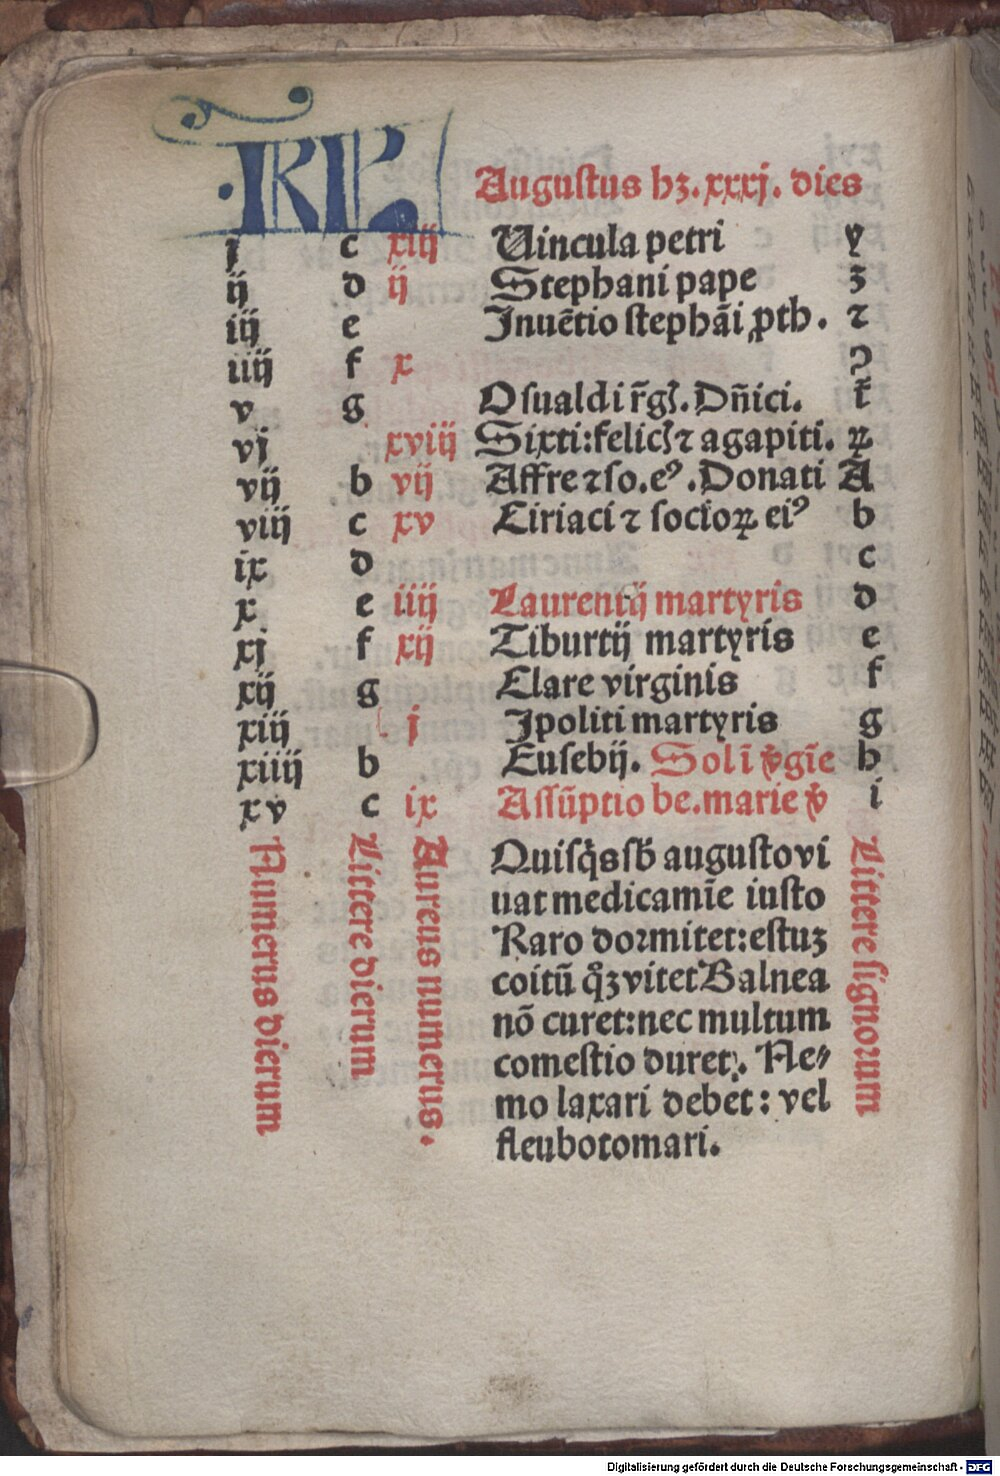 KL
Augustus hꝫ.xxxj. dies
j c xiij Uincula petri y
ij d ij Stephani pape ʒ
iij e Inuẽtio stephãi ꝓth. ⁊
iiij f x ꝯ
v g Osualdi r̃gꝭ. Dñici.
vj xviij Sixti:felicꝭ ⁊ agapiti. ꝝ
vij b vij Affre ⁊ so.eꝰ.Donati A
viij c xv Ciriaci ⁊ socioꝝ eiꝰ b
ix d c
x e iiij Laurentij martyris d
xj f xij Tiburtij martyris e
xij g Clare virginis f
xiij j Ipoliti martyris g
xiiij b Eusebij. Solĩ v̾gĩe h
xv c ix Assũptio be.marie v̾ i
Numerus dierum
Littere dierum
Aureus numerus.
Quisq̇s sb̃ augusto vi
uat medicamĩe iusto
Raro dormitet:estuʒ
coitũ q̊ʒ vitet Balnea
nõ curet:nec multum
comestio duret. Ne⸗
mo laxari debet: vel
fleubotomari.
Littere signorum
Digitalisierung gefördert durch die Deutsche Forschungsgemeinschaft - DFG